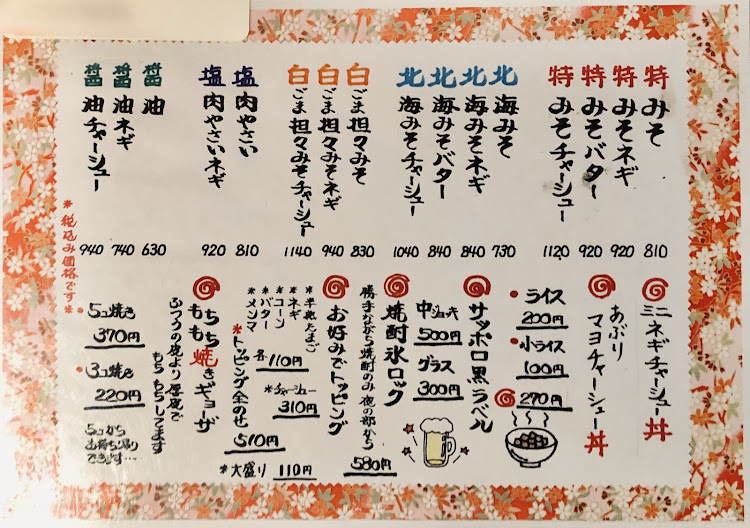 特みそ 810
特みそネギ 920
特みそバター 920
特みそチャーシュー 1120
北海みそ 730
北海みそネギ 840
北海みそバター 840
北海みそチャーシュー 1040
白ごま担々みそ 830
白ごま担々みそネギ 940
白ごま担々みそチャーシュー 1140
塩肉やさい 810
塩肉やさいネギ 920
醤油 630
醤油ネギ 740
醤油チャーシュー 940
*税込み価格です*
ミニネギチャーシュー丼
あぶり
マヨチャーシュー丼
ライス
200円
小ライス
100円
270円
サッポロ黒ラベル
中ジョッキ
500円
グラス
300円
焼酎氷ロック
勝手ながら焼酎のみ夜の部から
580円
お好みでトッピング
*半熟たまご
*ネギ
*コーン
*バター
*メンマ
各110円
*チャーシュー
310円
*トッピング全のせ
510円
*大盛り 110円
もちもち焼きギョーザ
ふつうの皮より厚皮で
もちもちしてます
5コ焼き
370円
3コ焼き
220円
5コから
お持ち帰り
できます…